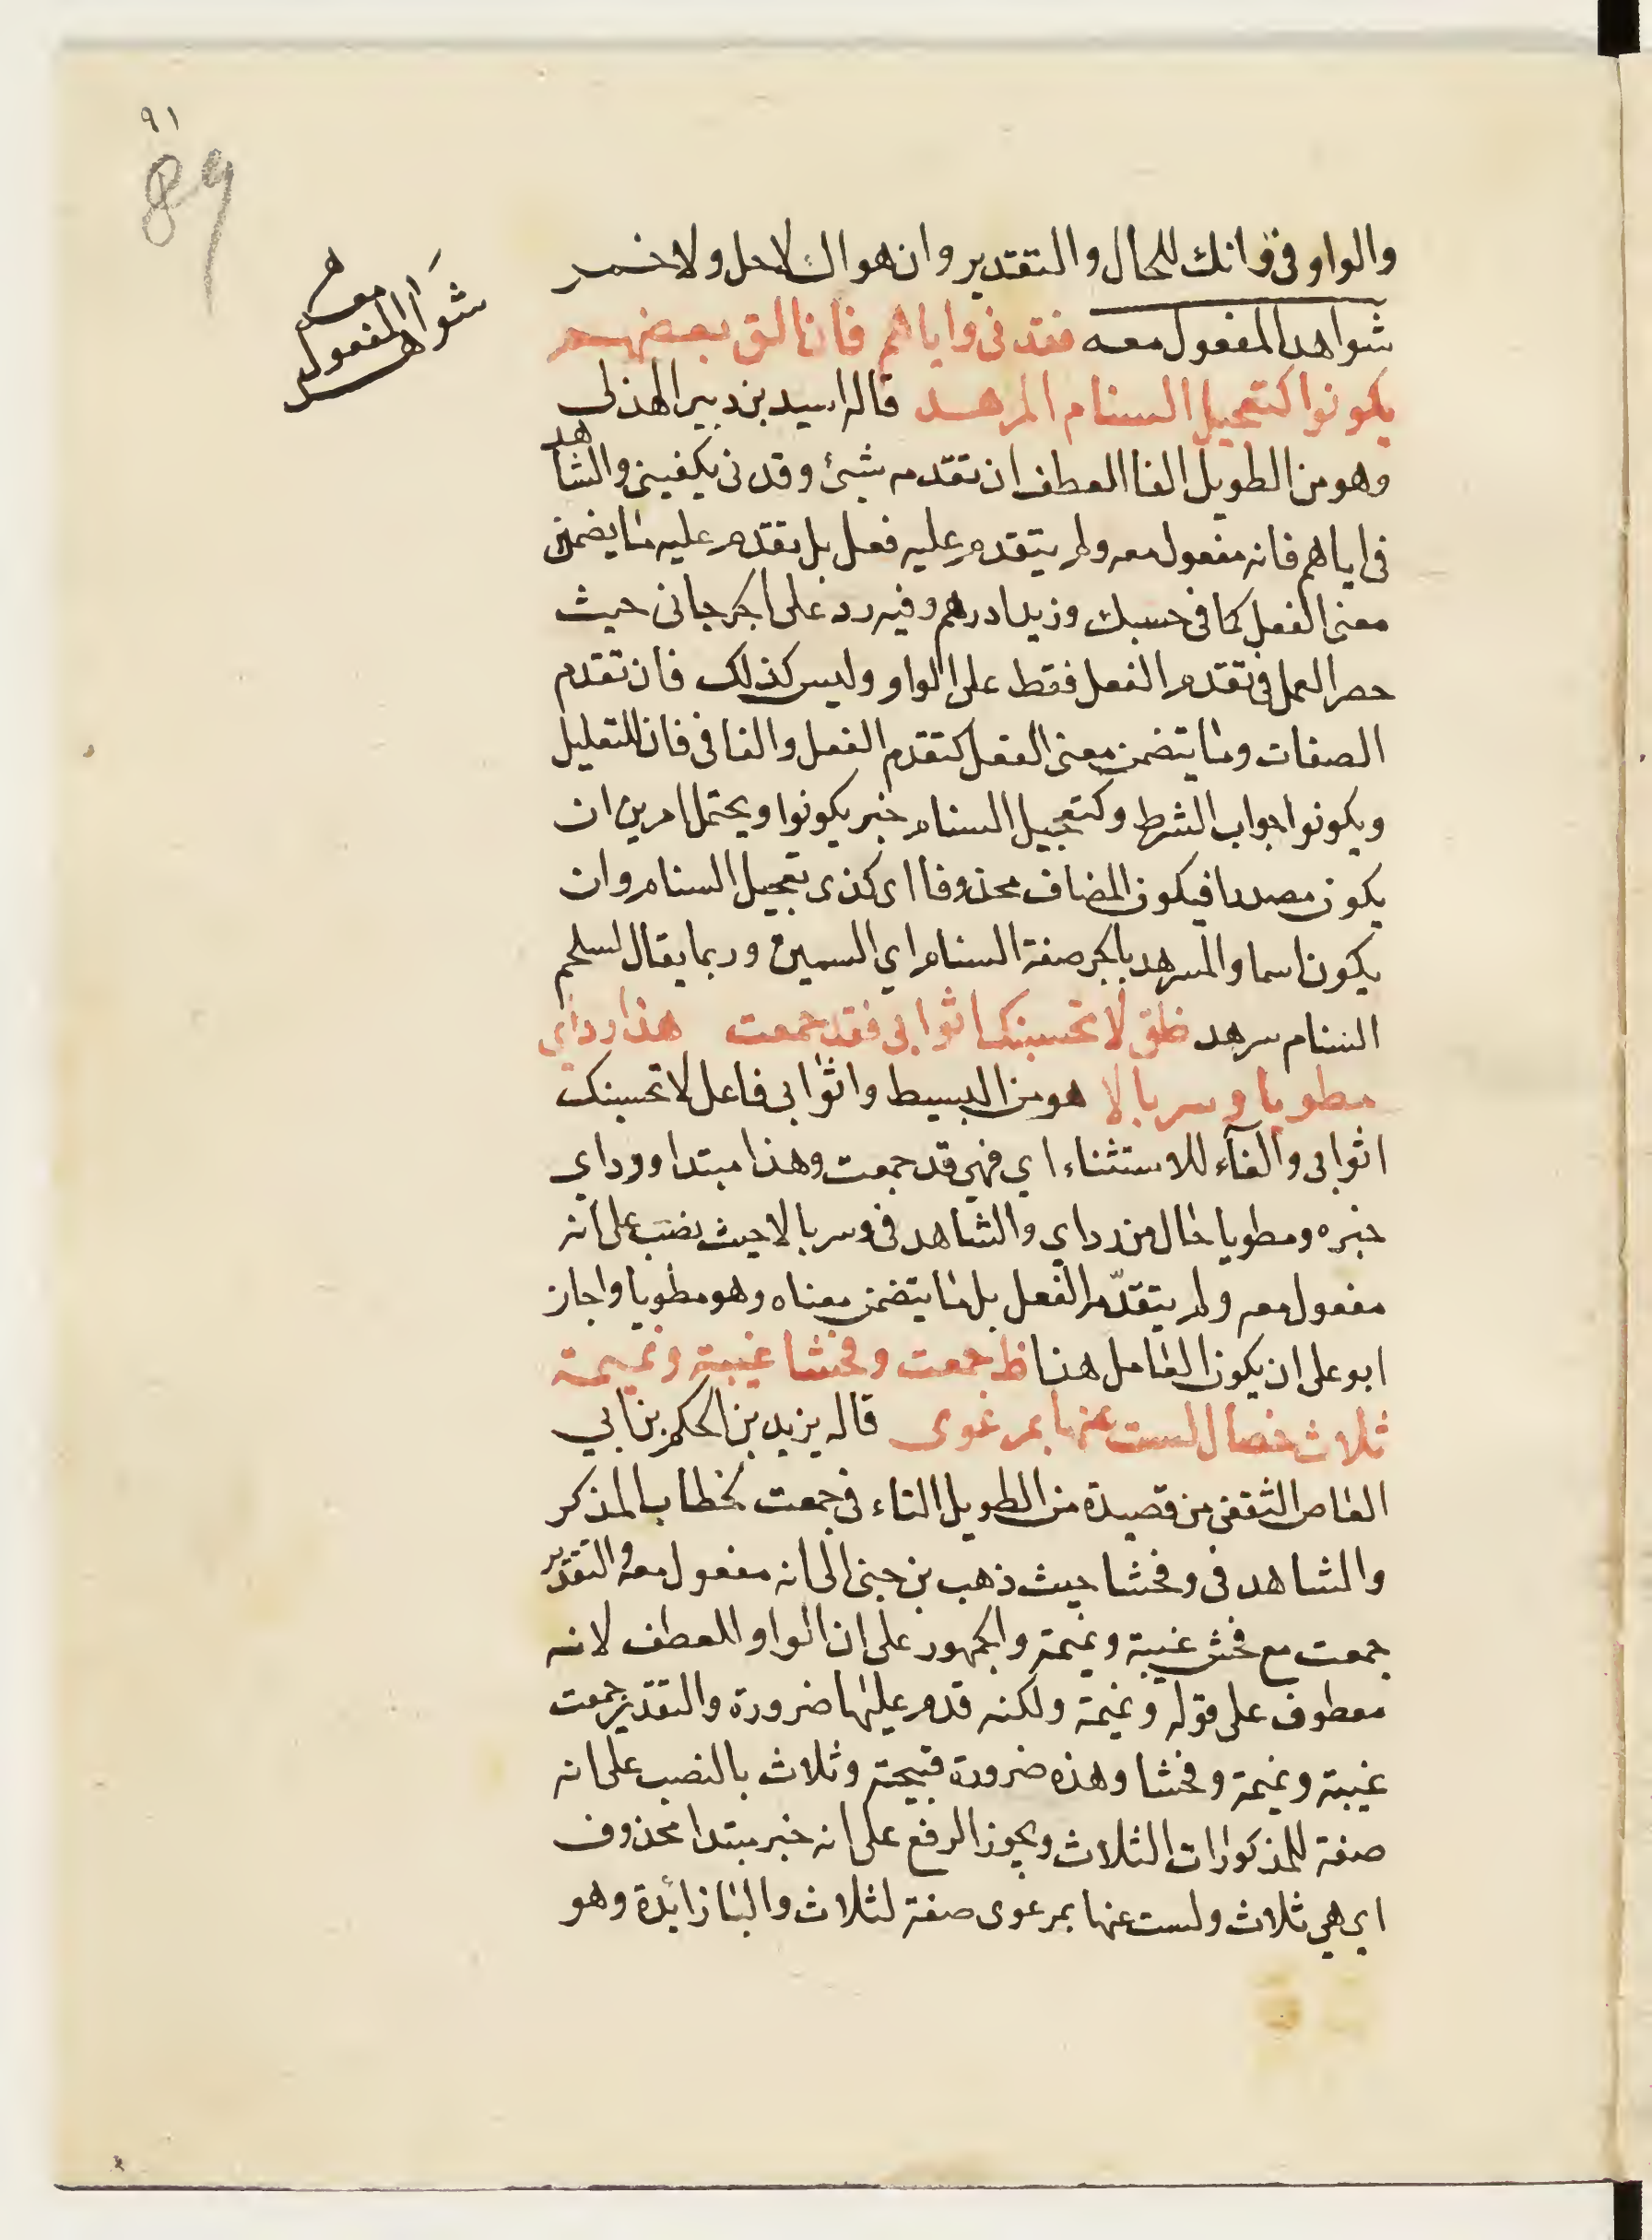 ٩١
89
شواهد
المفعول
معه
والواو في وانك للحال والتقدير وان هواك لاحل ولا خمر
شواهد المفعول معه فقدني واياهم فان الق بعضهم
يكونوا كتعجيل السنام المرهد قاله اسيد بن دبير الهذلي
وهو من الطويل الفا العطف ان تقدمه شيئ وقدني يكفيني والشاهد
في اياهم فانه مفعول معه ولم يتقدم عليه فعل بل تقدم عليه ما يضمن
معنى الفعل كما في حسبك وزيدا درهم وفيه رد على الجرجاني حيث
حصر العمل في تقدم الفعل فقط على الواو وليس كذلك فان تقدم
الصفات وما يتضمن معنى الفعل كتقدم الفعل والفا في فان للتعليل
ويكونوا جواب الشرط وكتعجيل السنام خبر يكونوا ويحتمل امرين ان
يكون مصدرا فيكون المضاف محذوفا اى كذى تعجيل السنام وان
يكون اسما والمسرهد بالجر صفة السنام اي السمين وربما يقال لسلحم
السنام سرهد ظق لا تحسبنك اثوابي فقد جمعت هذا رداي
مطويا وسربالا هو من البسيط واثوابي فاعل لا تحسبنك
اثوابي والفآء للاستثناء اي فهي قد جمعت وهذا مبتدا ورداي
خبره ومطويا حال من رداي والشاهد في وسربالا حيث نصب على انه
مفعول معه ولم يتقدّم الفعل بل ما يتضمن معناه وهو مطويا واجاز
ابو على ان يكون العامل هذا ظ جمعت وفحشا غيبة ونميمة
ثلاث خصال لست عنها بمرعوى قاله يزيد بن الحكم بن ابي
العاص الثقفي من قصيدة من الطويل التاء في جمعت لخطاب المذكر
والشاهد في وفحشا حيث ذهب بن جنى الى انه مفعول معه والتقدير
جمعت مع فحش غيبة ونميمة والجمهور على ان الواو للعطف لانه
معطوف على قوله ونميمة ولكنه قدم عليها ضرورة والتقدير جمعت
غيبة ونميمة وفحشا وهذه ضرورة قبيحة وثلاث بالنصب على انه
صفة للمذكورات الثلاث ويجوز الرفع على انه خبر مبتدا محذوف
اي هي ثلاث ولست عنها بمرعوى صفة لثلاث والبا زائدة وهو